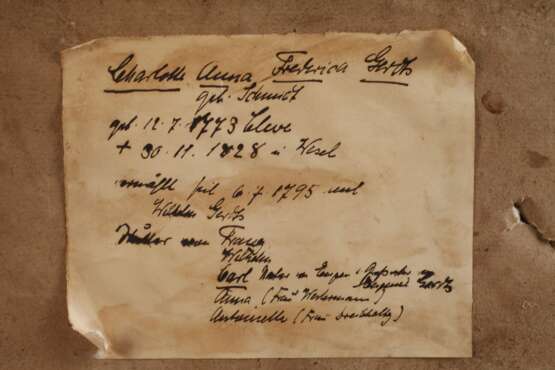 Charlotte Anna Frederica Gerdts
geb. Schmidt
geb. 12.7.1773 Cleve
+ 30.11.1828 in Wesel
vermählt seit 6 7 1795 mit
Wilhelm Gerdts
Mutter von Franz
Wilhelm
Carl Vater von Eugen u Großvater v
Gerdts
Anna (Frau Westermann)
Antoinette (Frau